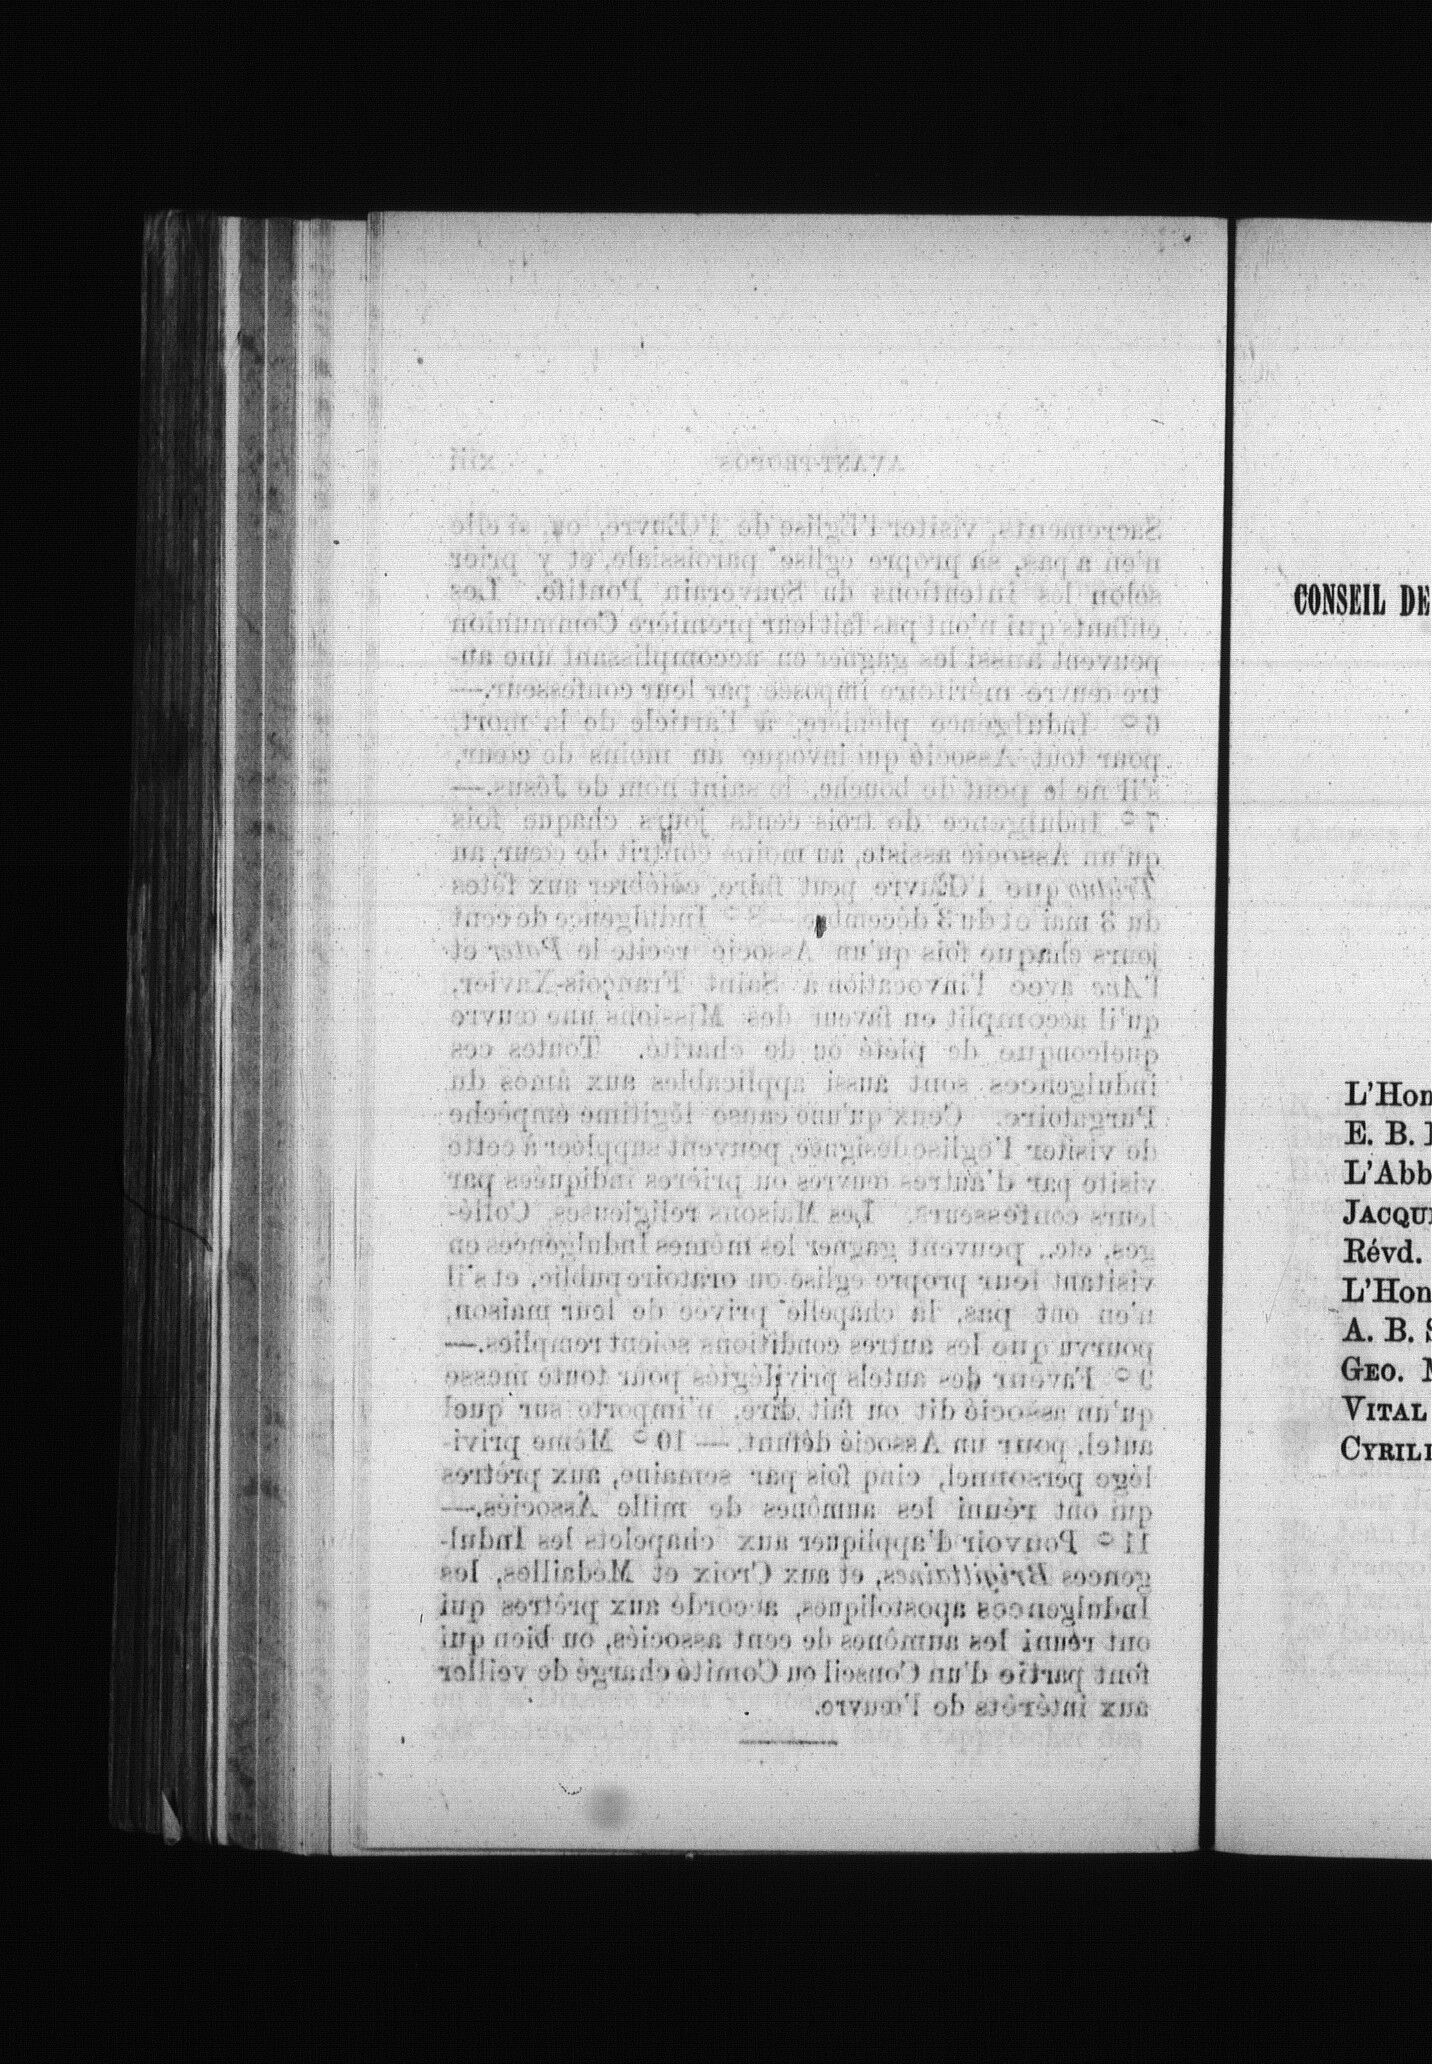 AVANT-PROPOS xiii
Sacrements, visiter l'Eglise de l'Œuvre, ou, si elle
n'en a pas, sa propre église paroissiale, et y prier
selon les intentions du Souverain Pontife. Les
enfants qui n'ont pas fait leur première Communion
peuvent aussi les gagner en accomplissant une au-
tre œuvre méritoire imposée par leur confesseur.—
6° Indulgence plénière, à l'article de la mort,
pour tout Associé qui invoque au moins de cœur,
s'il ne le peut de bouche, le saint nom de Jésus.—
7° Indulgence de trois cents jours chaque fois
qu'un Associé assiste, au moins contrit de cœur, au
Triduo que l'Œuvre peut faire célébrer aux fêtes
du 3 mai et du 3 décembre.—8° Indulgence de cent
jours chaque fois qu'un Associé récite le Pater et
l'Ave avec l'invocation à Saint François-Xavier,
qu'il accomplit en faveur des Missions une œuvre
quelconque de piété ou de charité. Toutes ces
indulgences sont aussi applicables aux âmes du
Purgatoire. Ceux qu'une cause légitime empêche
de visiter l'église désignée, peuvent suppléer à cette
visite par d'autres œuvres ou prières indiquées par
leurs confesseurs. Les Maisons religieuses, Collé-
ges, etc., peuvent gagner les mêmes Indulgences en
visitant leur propre église ou oratoire public, et s'il
n'en ont pas, la chapelle privée de leur maison,
pourvu que les autres conditions soient remplies.—
9° Faveur des autels privilégiés pour toute messe
qu'un associé dit ou fait dire, n'importe sur quel
autel, pour un Associé défunt. — 10° Même privi-
lége personnel, cinq fois par semaine, aux prêtres
qui ont réuni les aumônes de mille Associés.—
11° Pouvoir d'appliquer aux chapelets les Indul-
gences Brigittaines, et aux Croix et Médailles, les
Indulgences apostoliques, accordé aux prêtres qui
ont réuni les aumônes de cent associés, ou bien qui
font partie d'un Conseil ou Comité chargé de veiller
aux intérêts de l'œuvre.
CONSEIL DE
L'Hon
E. B.
L'Abb
JACQU
Révd.
L'Hon
A. B. S
GEO.
VITAL
CYRIL